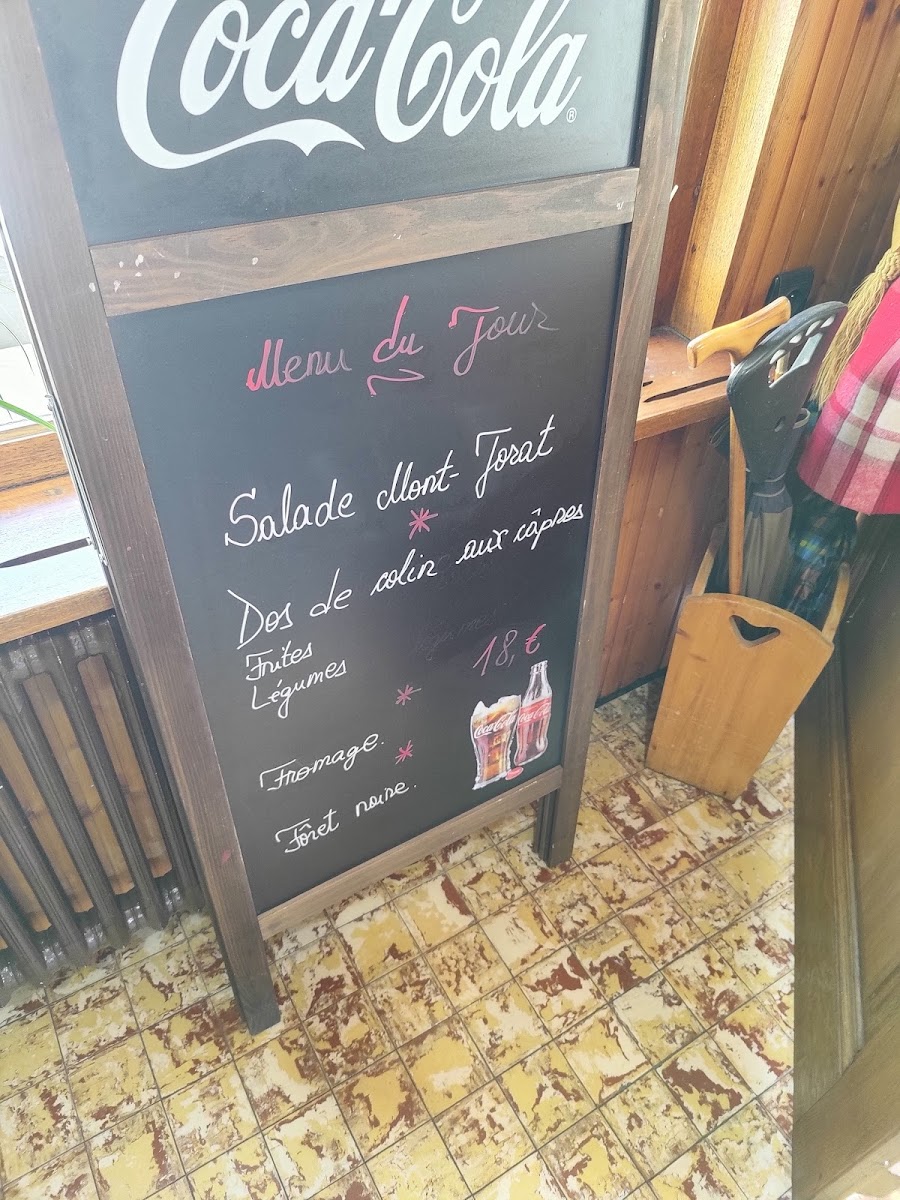 Coca-Cola®
Menu du Jour
Salade Mont-Jorat
*
Dos de colin aux câpres
Frites
Légumes
18,€
*
Fromage.
*
Fôret noire.
Coca-Cola
Coca-Cola